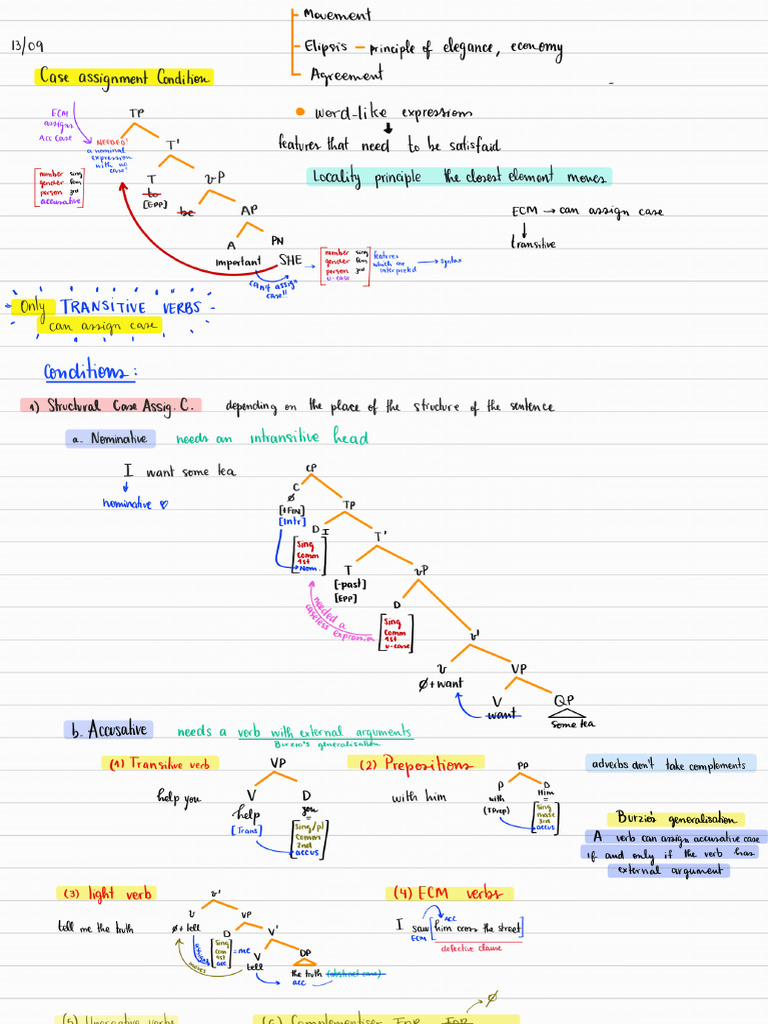 13/09
Movement
Elipsis – principle of elegance, economy
Agreement
Case assignment Condition
word-like expressions
features that need to be satisfaid
Locality principle the closest element moves
ECM → can assign case
transitive
ECM
assigns
Acc case
NEEDED!
a nominal
expression
with no
case!
TP
T'
T
to
[EPP]
vP
be
AP
A
important
PN
SHE
number sing
gender fem
person 3rd
accusative
can't assign
case!!
number sing
gender fem
person 3rd
u-case
features
which are
interpreted
→ syntax
Only TRANSITIVE VERBS
can assign case
Conditions:
1) Structural Case Assig. C. depending on the place of the structure of the sentence
a. Nominative needs an intransitive head
I want some tea
nominative ♡
CP
C
ø
[+FIN]
[Intr]
TP
D I
Sing
Comm
1st
Nom.
T'
T
[-past]
[EPP]
vP
D
Sing
Comm
1st
u-case
needed a
caseless expression
v'
v
ø + want
VP
V
want
QP
some tea
b. Accusative needs a verb with external arguments
Burzio's generalisation
(1) Transitive verb
help you
VP
V
help
[Trans]
D
you
=
Sing/pl
Common
2nd
accus
(2) Prepositions
with him
PP
P
with
(TPrep)
D
Him
=
Sing
masc
3rd
accus
adverbs don't take complements
Burzio's generalisation
A verb can assign accusative case
if and only if the verb has
external argument
(3) light verb
tell me the truth
v'
v
ø + tell
VP
D
Sing
Com
1st
acc
= me
assigns
moves
V'
V
tell
DP
the truth (abstract case)
acc
(4) ECM verbs
I saw [him cross the street]
ACC
ECM
defective clause
(5) Unergative verbs
(6) Complementiser FOR FOR
→ ø